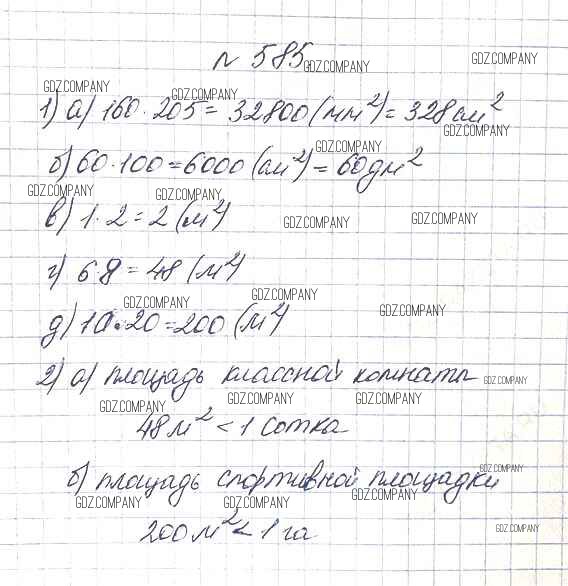 № 585.
GDZ.COMPANY GDZ.COMPANY
GDZ.COMPANY GDZ.COMPANY
1) а) 160·205 = 32800 (мм²) = 328 см²
GDZ.COMPANY
GDZ.COMPANY
б) 60·100 = 6000 (см²) = 60 дм²
GDZ.COMPANY GDZ.COMPANY
в) 1·2 = 2 (м²)
GDZ.COMPANY GDZ.COMPANY
г) 6·8 = 48 (м²)
GDZ.COMPANY GDZ.COMPANY GDZ.COMPANY
д) 10·20 = 200 (м²)
2) а) площадь классной комнаты
GDZ.COMPANY
GDZ.COMPANY GDZ.COMPANY GDZ.COMPANY
48 м² < 1 сотка
б) площадь спортивной площадки
GDZ.COMPANY
GDZ.COMPANY GDZ.COMPANY GDZ.COMPANY
200 м² < 1 га
GDZ.COMPANY